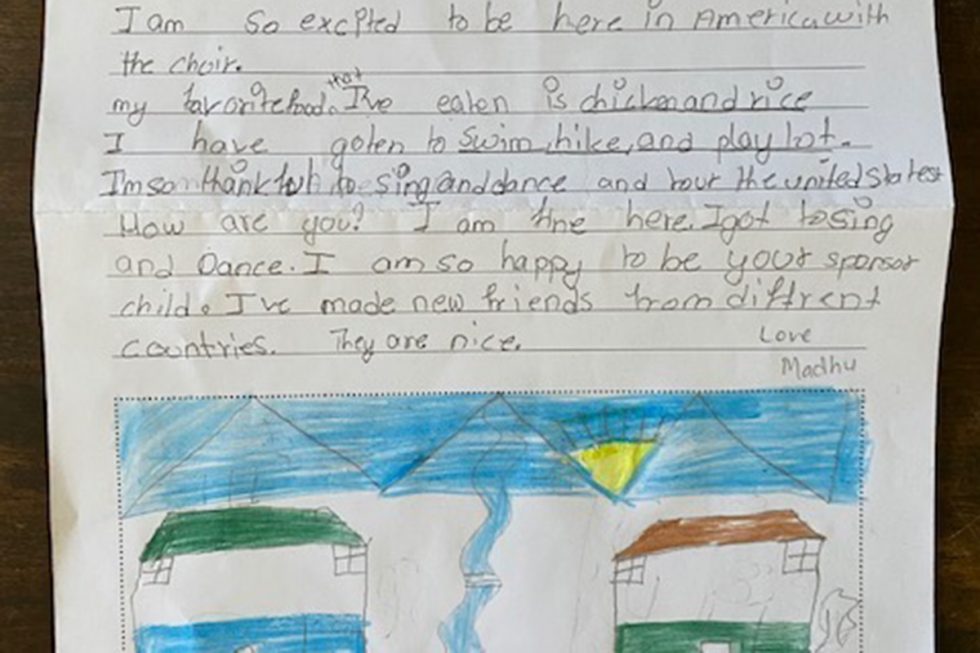 I am so excpted to be here in America with
the choir.
my favorite food that I've eaten is chicken and rice
I have goten to swim, hike, and play lot.
I'm so thankful to sing and dance and tour the united states
How are you? I am fine here. I got to sing
and Dance. I am so happy to be your sponsor
child. I've made new friends from diffrent
countries. They are nice.
Love
Madhu